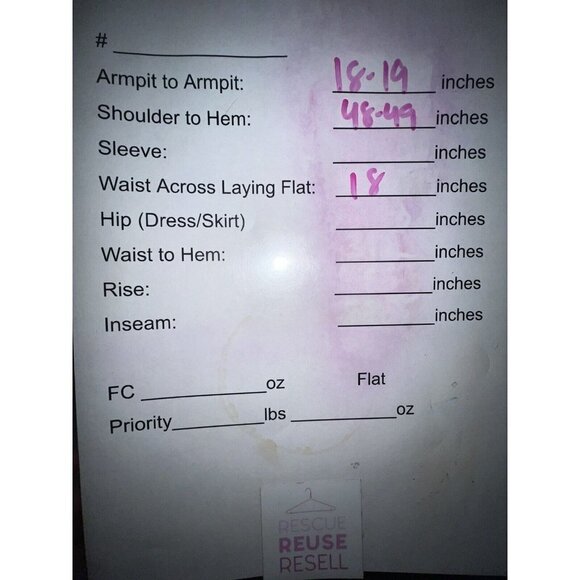 # ____________
Armpit to Armpit: 18-19 inches
Shoulder to Hem: 48-49 inches
Sleeve: ________ inches
Waist Across Laying Flat: 18 inches
Hip (Dress/Skirt) ________ inches
Waist to Hem: ________ inches
Rise: ________ inches
Inseam: ________ inches
FC ________ oz Flat
Priority ________ lbs ________ oz
RESCUE
REUSE
RESELL